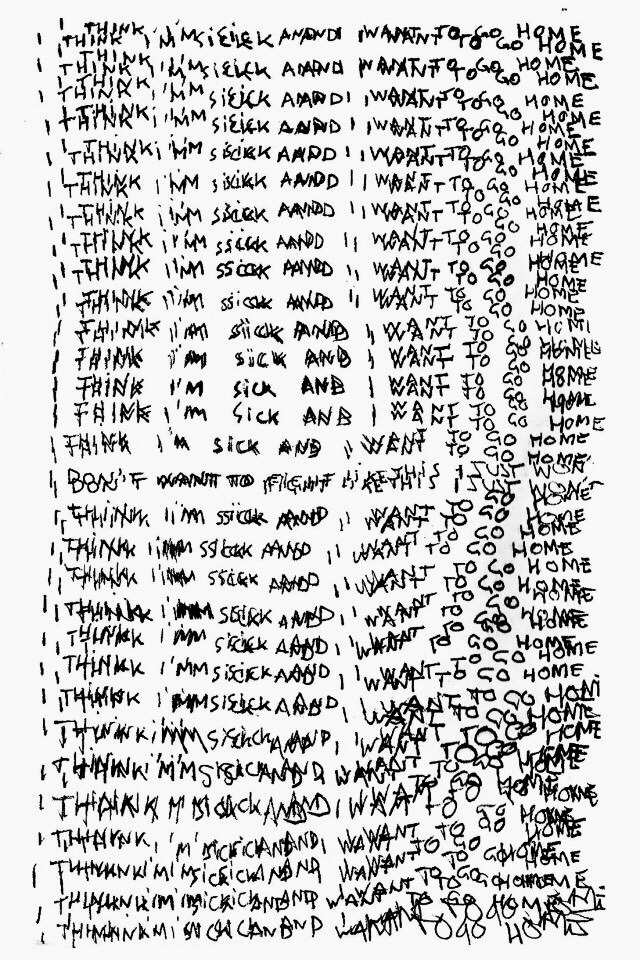 I THINK I'M SICK AND I WANT TO GO HOME
I THINK I'M SICK AND I WANT TO GO HOME
I THINK I'M SICK AND I WANT TO GO HOME
I THINK I'M SICK AND I WANT TO GO HOME
I THINK I'M SICK AND I WANT TO GO HOME
I THINK I'M SICK AND I WANT TO GO HOME
I THINK I'M SICK AND I WANT TO GO HOME
I THINK I'M SICK AND I WANT TO GO HOME
I THINK I'M SICK AND I WANT TO GO HOME
I THINK I'M SICK AND I WANT TO GO HOME
I THINK I'M SICK AND I WANT TO GO HOME
I THINK I'M SICK AND I WANT TO GO HOME
I THINK I'M SICK AND I WANT TO GO HOME
I THINK I'M SICK AND I WANT TO GO HOME
I THINK I'M SICK AND I WANT TO GO HOME
I DON'T WANT TO FIGHT LIKE THIS I JUST WON'T
I THINK I'M SICK AND I WANT TO GO HOME
I THINK I'M SICK AND I WANT TO GO HOME
I THINK I'M SICK AND I WANT TO GO HOME
I THINK I'M SICK AND I WANT TO GO HOME
I THINK I'M SICK AND I WANT TO GO HOME
I THINK I'M SICK AND I WANT TO GO HOME
I THINK I'M SICK AND I WANT TO GO HOME
I THINK I'M SICK AND I WANT TO GO HOME
I THINK I'M SICK AND I WANT TO GO HOME
I THINK I'M SICK AND I WANT TO GO HOME
I THINK I'M SICK AND I WANT TO GO HOME
I THINK I'M SICK AND I WANT TO GO HOME
I THINK I'M SICK AND I WANT TO GO HOME
I THINK I'M SICK AND I WANT TO GO HOME